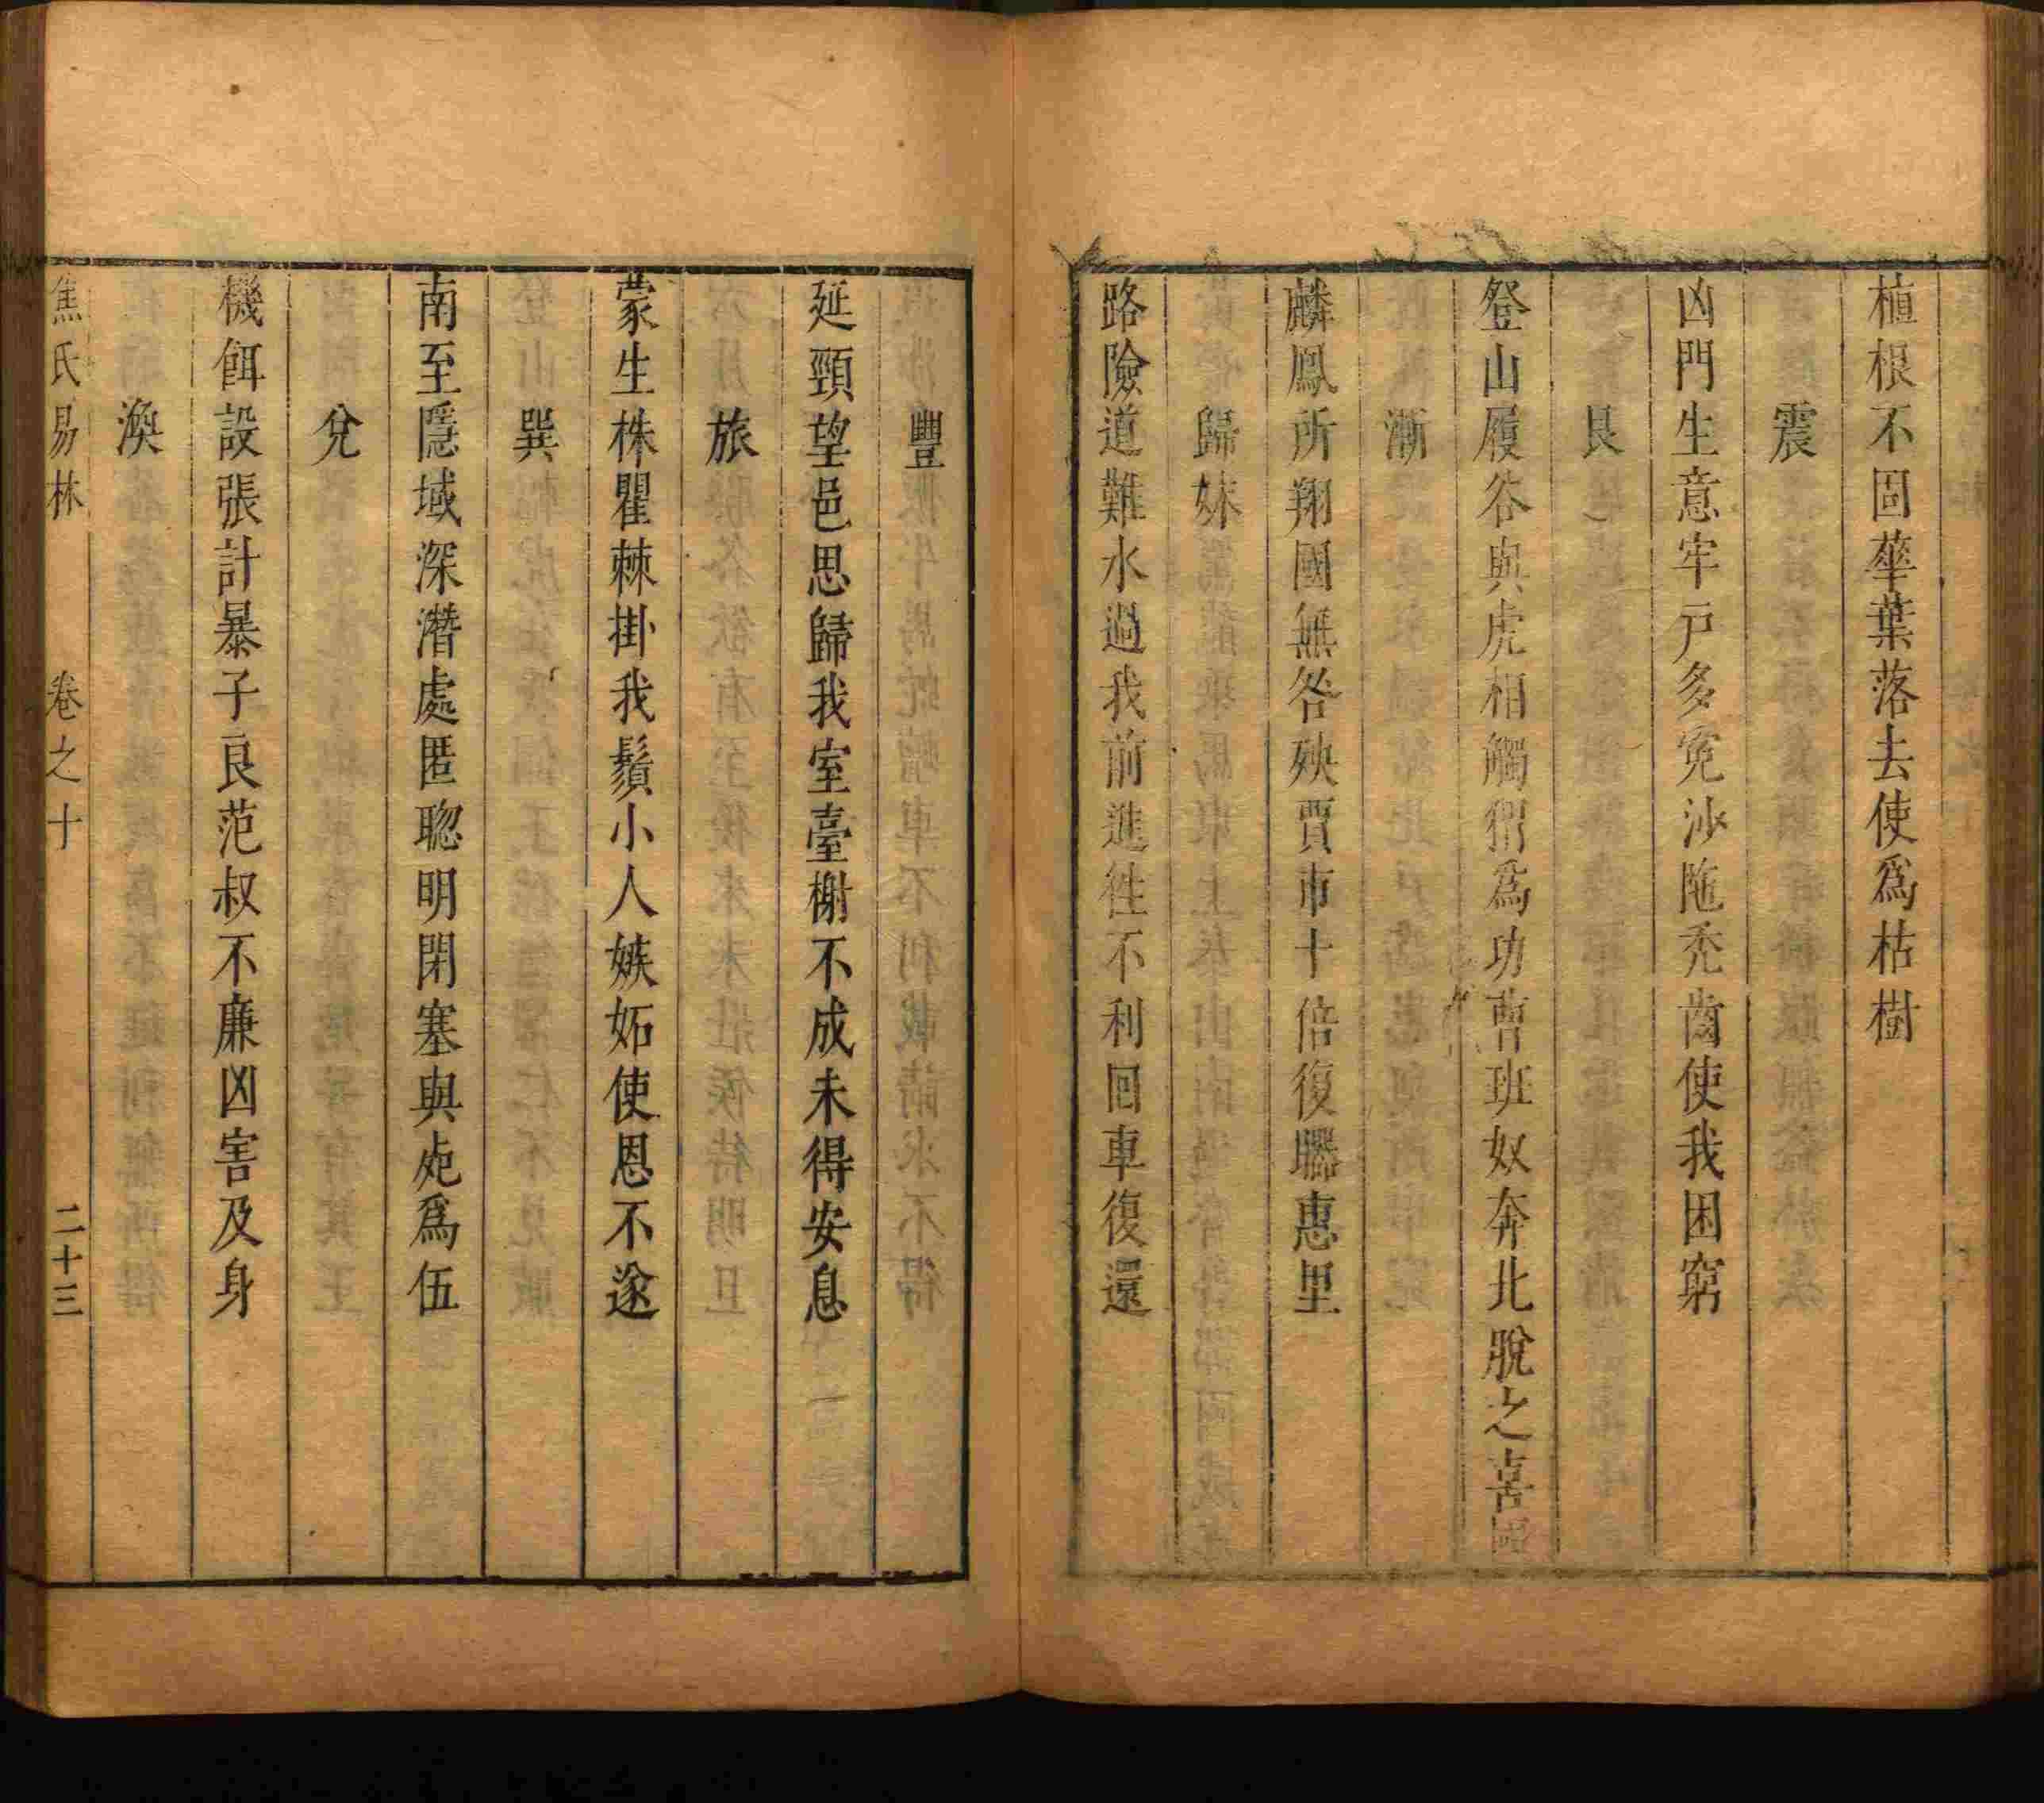 植根不固華葉落去使爲枯樹
震
凶門生意牢戸多冤沙陁禿齒使我困窮
艮
登山履谷與虎相觸猬爲功曹班奴奔北脫之喜國
漸
麟鳳所翔國無咎殃賈市十倍復歸惠里
歸妹
路險道難水過我前進往不利回車復還
豐
延頸望邑思歸我室臺榭不成未得安息
旅
蒙生株瞿棘掛我鬚小人嫉妬使恩不遂
巽
南至隱域深潛處匿聰明閉塞與死爲伍
兌
機餌設張計暴子良范叔不廉凶害及身
渙
焦氏易林 卷之十 二十三